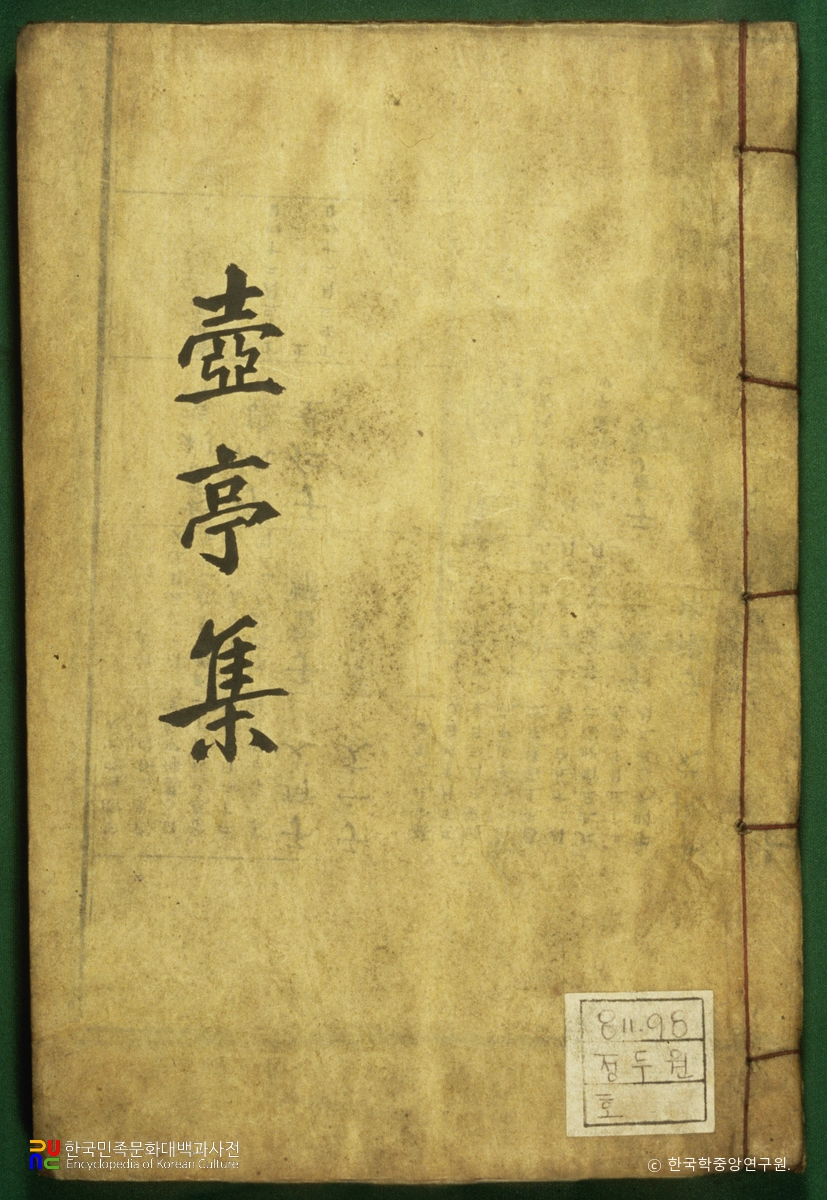 壺亭集
811.98
정두원
호
한국민족문화대백과사전
Encyclopedia of Korean Culture
© 한국학중앙연구원.